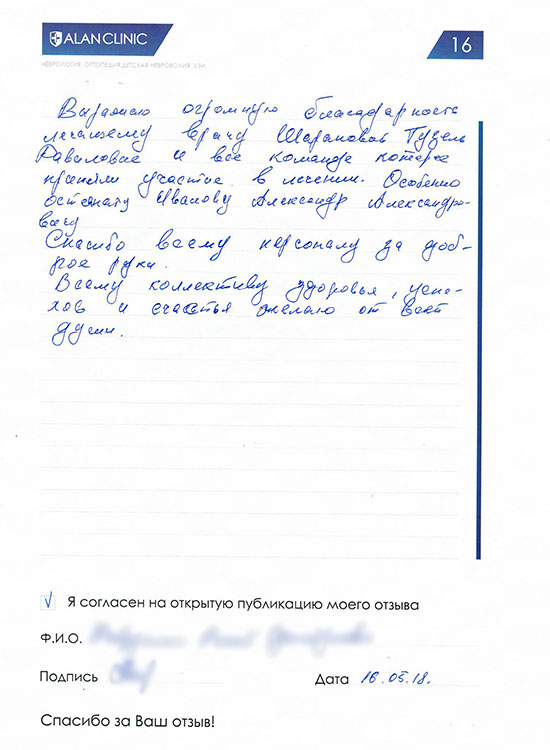 ALAN CLINIC
16
НЕВРОЛОГИЯ. ОРТОПЕДИЯ. ДЕТСКАЯ НЕВРОЛОГИЯ. УЗИ.
Выражаю огромную благодарность
лечащему врачу Шараповой Гузель
Равиловне и все команде которые
приняли участие в лечении. Особенно
остеопату Иванову Александр Александро-
вичу
Спасибо всему персоналу за доб-
рое руки.
Всему коллективу здоровья, успе-
хов и счастья желаю от всей
души.
√ Я согласен на открытую публикацию моего отзыва
Ф.И.О.
Подпись
Дата 16.05.18.
Спасибо за Ваш отзыв!